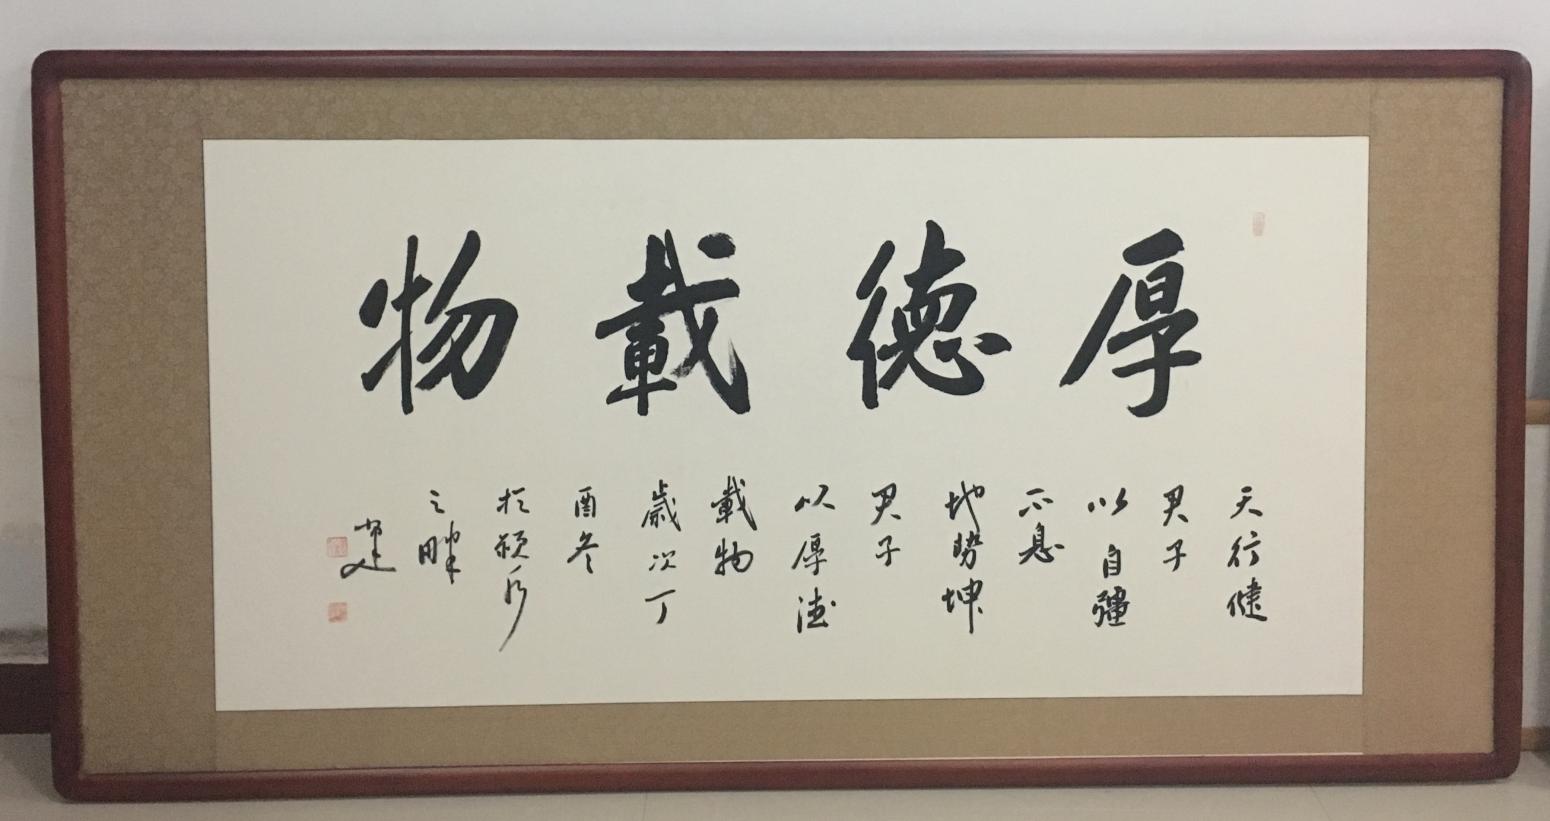 厚德載物
天行健
君子
以自彊
不息
地勢坤
君子
以厚德
載物
歲次丁
酉冬
於潁水
之畔